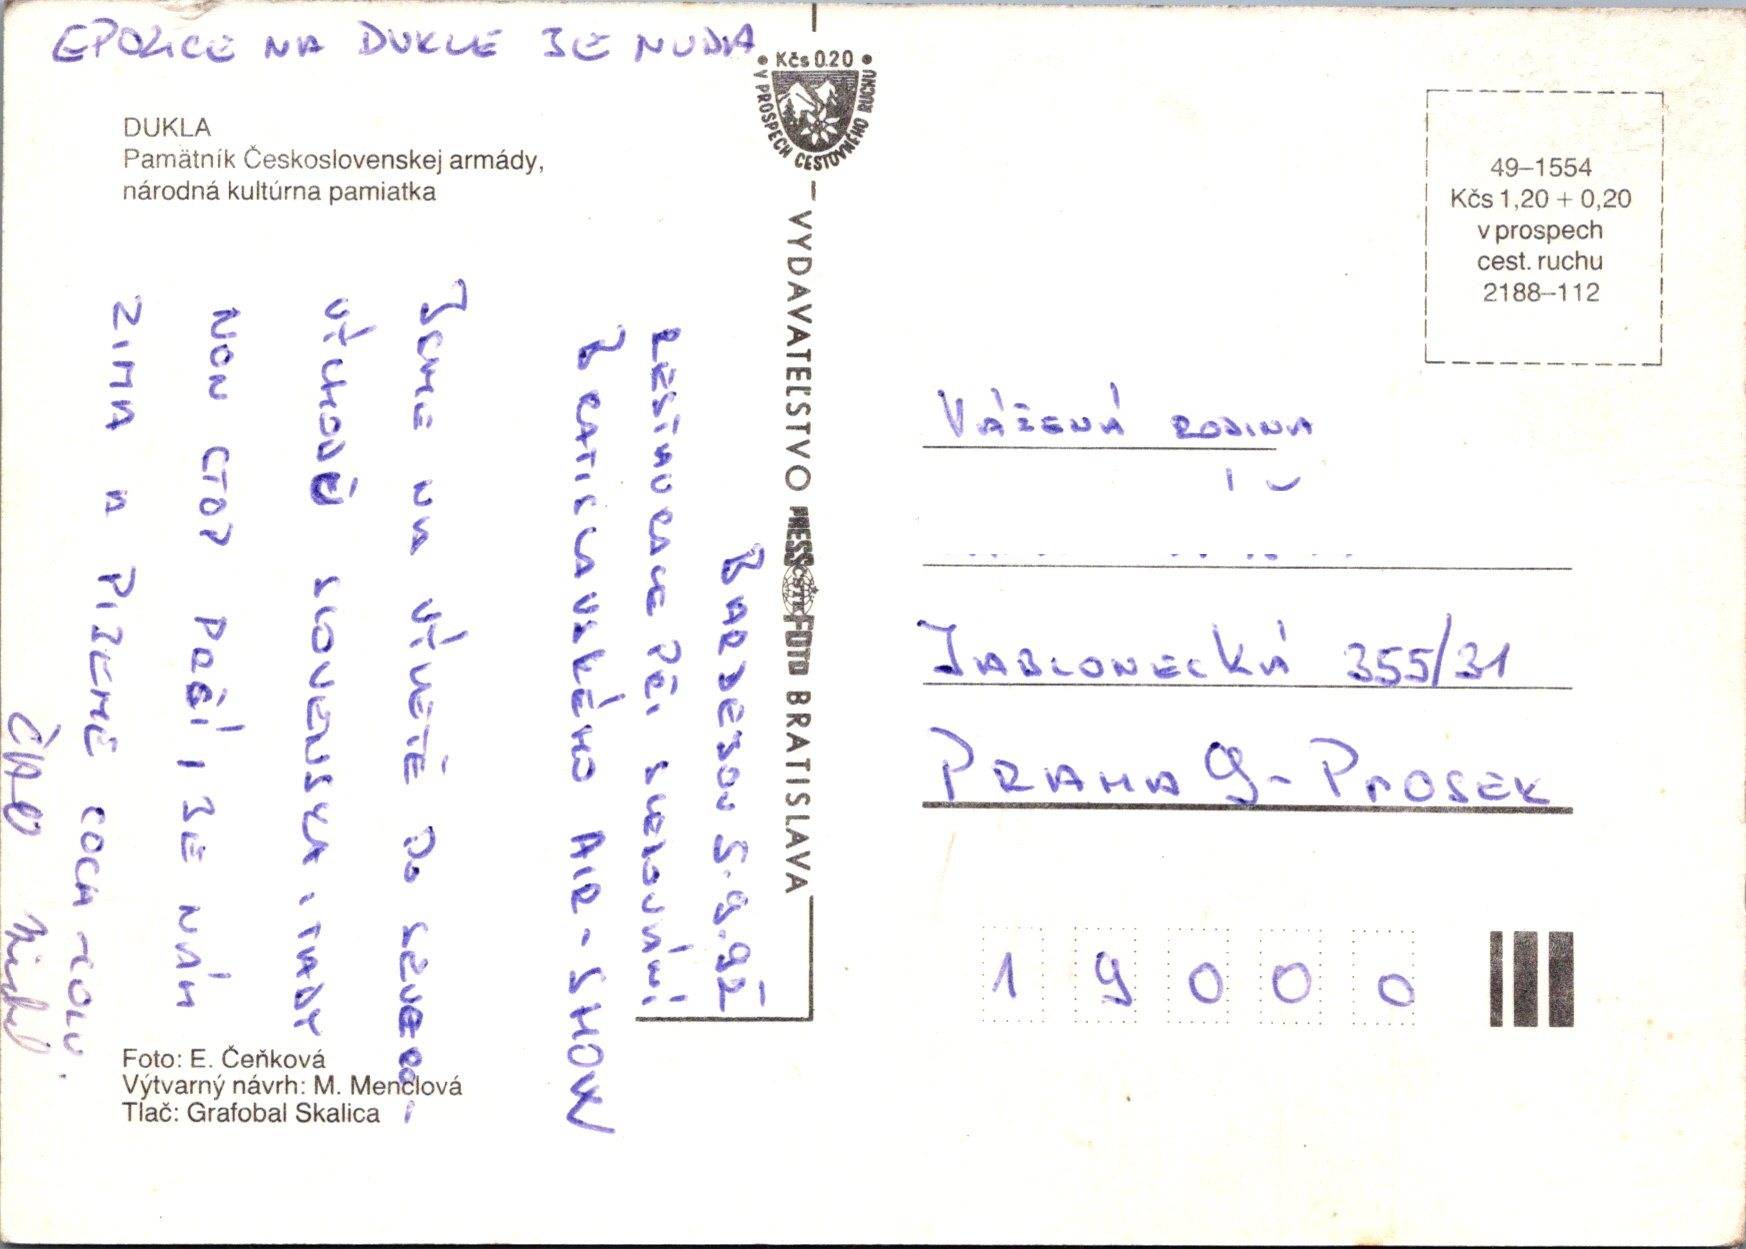 NA DUKLE JE NUDA
DUKLA
Pamätník Československej armády,
národná kultúrna pamiatka
Kčs 0.20
V PROSPECH CESTOVNÉHO RUCHU
VYDAVATEĽSTVO PRESSFOTO BRATISLAVA
ČSTK
49–1554
Kčs 1,20 + 0,20
v prospech
cest. ruchu
2188–112
BARDEJOV 5.9.92
RESTAURACE PŘI
BRATISLAVSKÉHO AIR-SHOW
JSME NA VÝLETĚ DO SEVERO-
VÝCHODĚ SLOVENSKA I TADY
NON STOP PRŠÍ I JE NÁM
ZIMA A PIJEME COCA-COLU.
ČAO
VÁŽENÁ RODINA
JABLONECKÁ 355/31
PRAHA 9 - PROSEK
19000
Foto: E. Čeňková
Výtvarný návrh: M. Menclová
Tlač: Grafobal Skalica